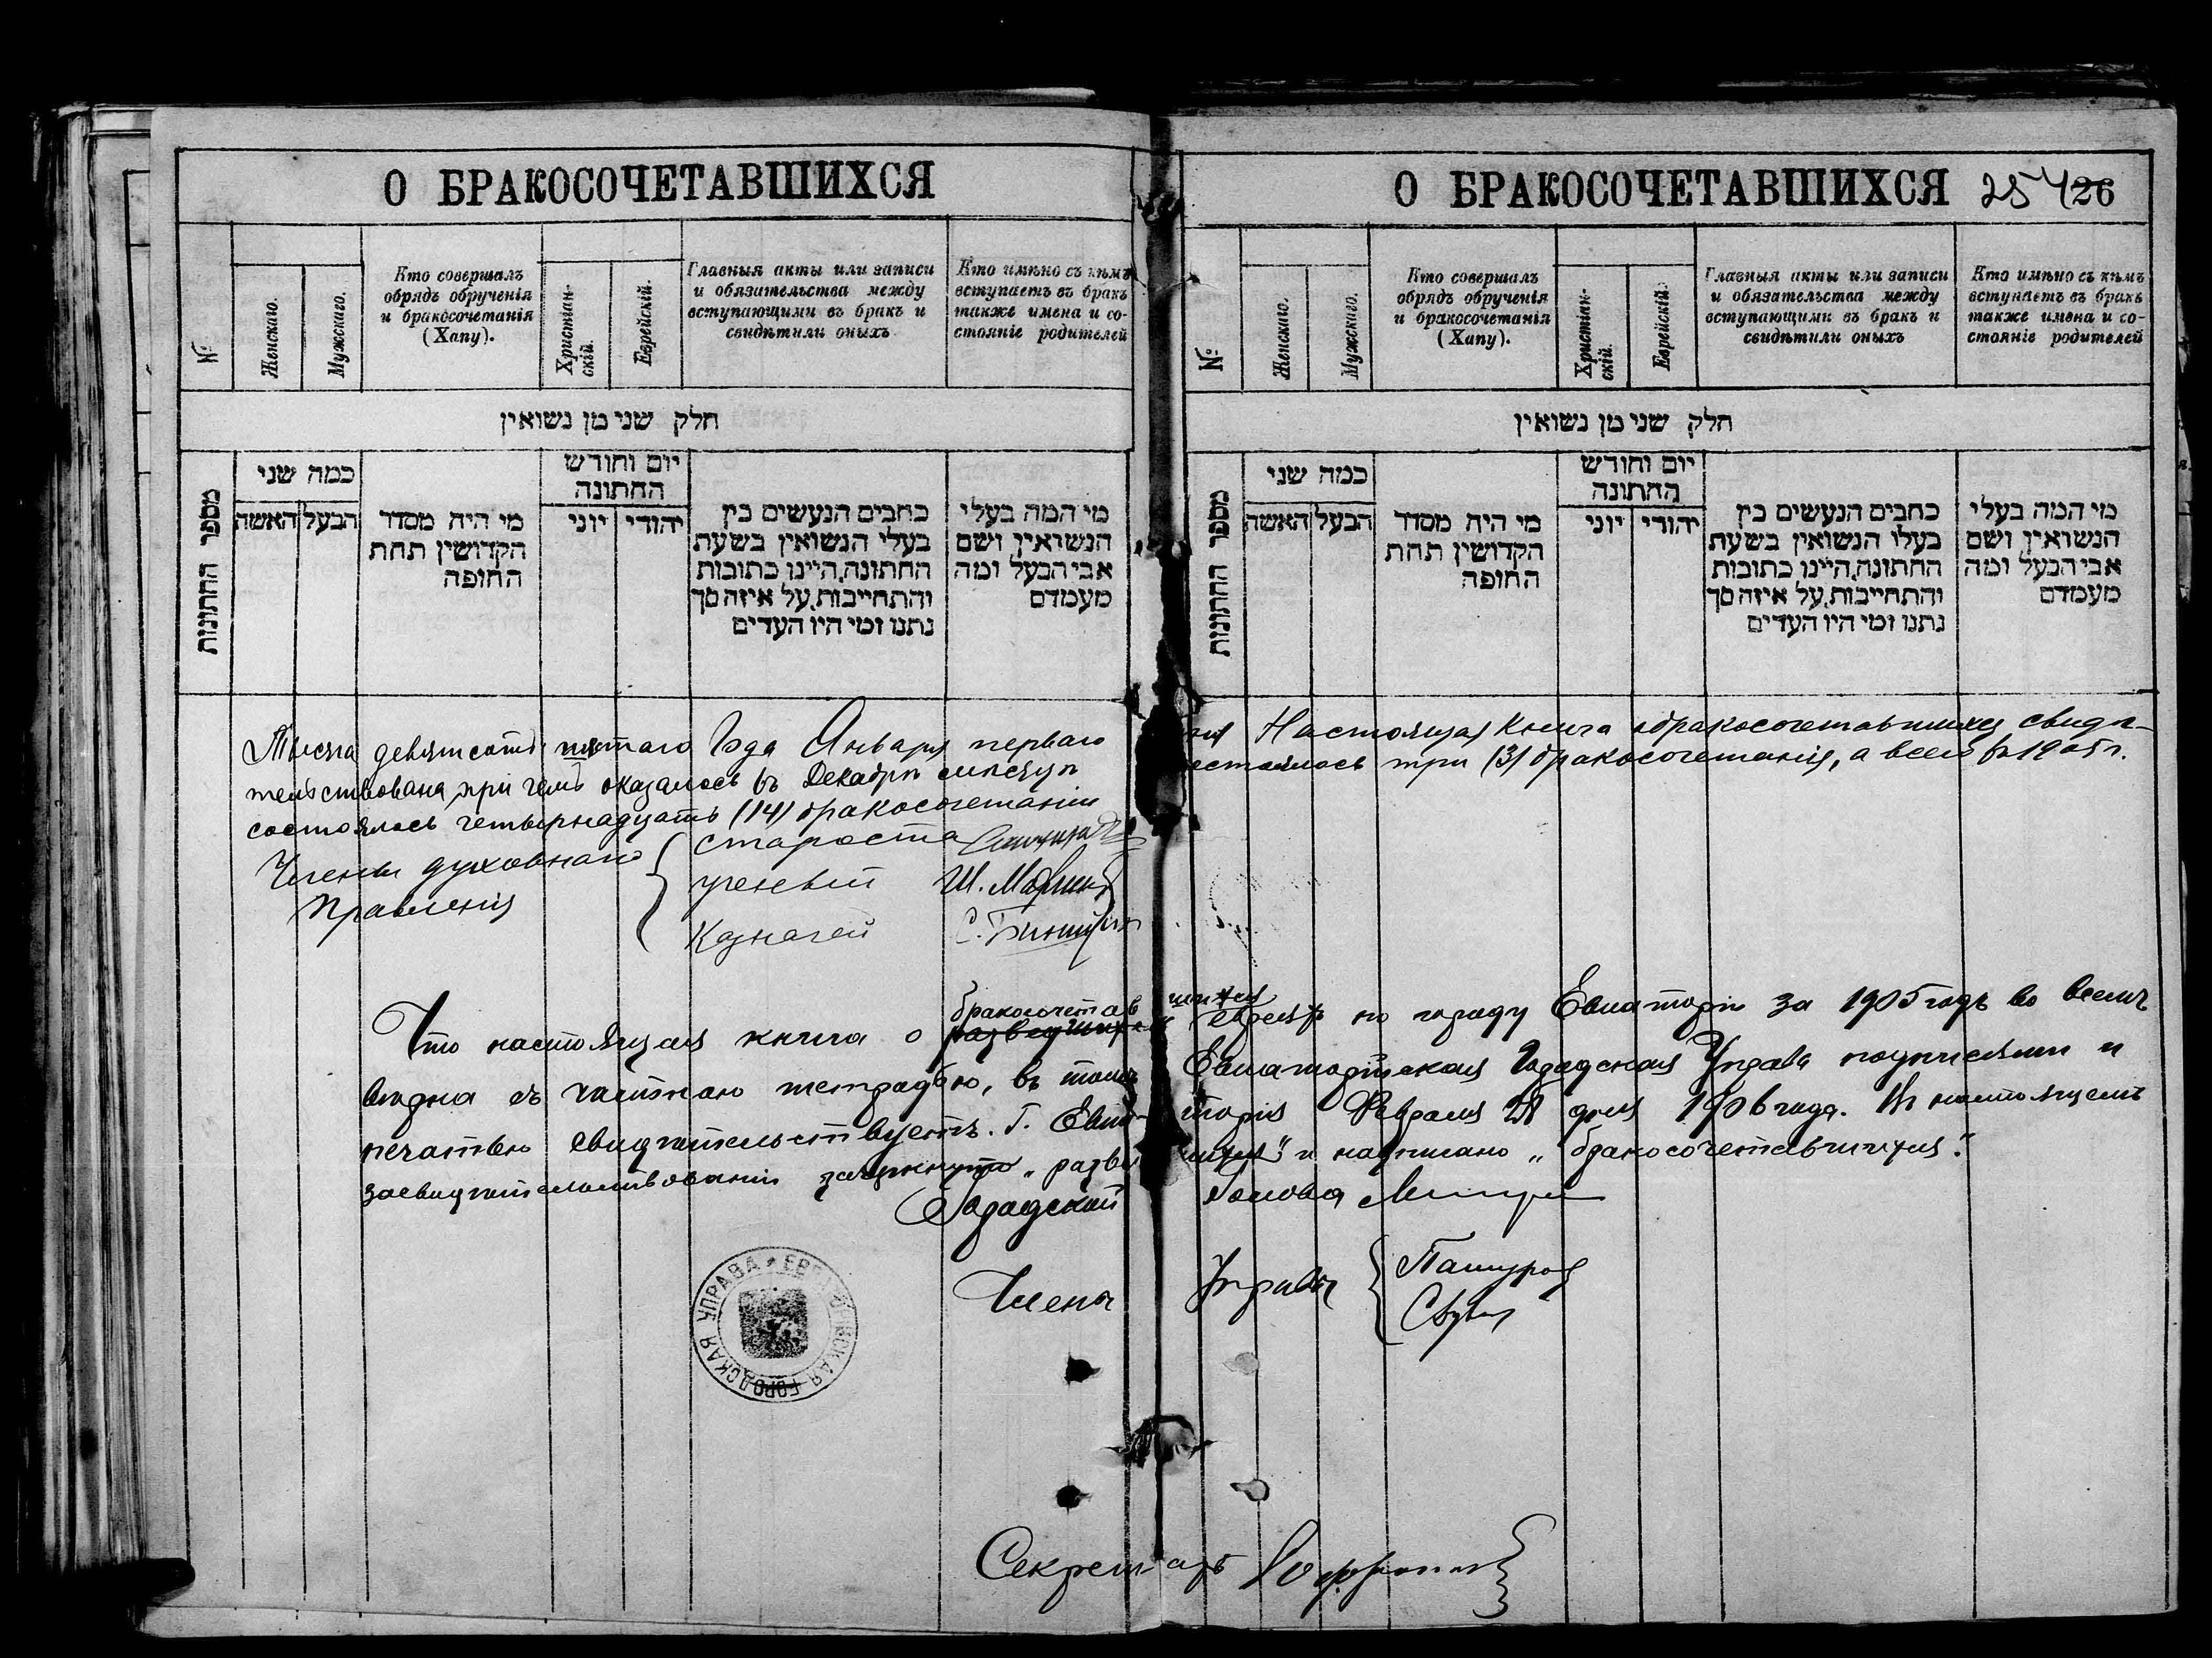 О БРАКОСОЧЕТАВШИХСЯ
№
Женскаго.
Мужскаго.
Кто совершалъ
обрядъ обрученія
и бракосочетанія
(Хапу).
Христіан-
скій.
Еврейскій.
Главныя акты или записи
и обязательства между
вступающими въ бракъ и
свидѣтили оныхъ
Кто имѣно съ кѣмъ
вступаетъ въ бракъ
также имена и со-
стояніе родителей
חלק שני מן נשואין
מספר החתונות
כמה שני
האשה
הבעל
מי היה מסדר
הקדושין תחת
החופה
יום וחודש
החתונה
יוני
יהודי
כתבים הנעשים בין
בעלי הנשואין בשעת
החתונה, היינו כתובות
והתחייבות, על איזה סך
נתנו ומי היו העדים
מי המה בעלי
הנשואין ושם
אבי הבעל ומה
מעמדם
О БРАКОСОЧЕТАВШИХСЯ 25 26
№
Женскаго.
Мужскаго.
Кто совершалъ
обрядъ обрученія
и бракосочетанія
(Хапу).
Христіан-
скій.
Еврейскій.
Главныя акты или записи
и обязательства между
вступающими въ бракъ и
свидѣтили оныхъ
Кто имѣно съ кѣмъ
вступаетъ въ бракъ
также имена и со-
стояніе родителей
חלק שני מן נשואין
מספר החתונות
כמה שני
האשה
הבעל
מי היה מסדר
הקדושין תחת
החופה
יום וחודש
החתונה
יוני
יהודי
כתבים הנעשים בין
בעלו הנשואין בשעת
החתונה, היינו כתובות
והתחייבות, על איזה סך
נתנו ומי היו העדים
מי המה בעלי
הנשואין ושם
אבי הבעל ומה
מעמדם
Тысяча девятсотъ пятаго Года Января перваго дня Настоящая Книга о бракосочетавшихся свидѣ-
тельствована, при чемъ оказалось въ Декабрѣ мѣсяцѣ состоялось три (3) бракосочетанія, а всего въ 1905 г.
состоялось четырнадцать (14) бракосочетаній
Члены духовнаго
Правленія
староста
ученый
Казначей
бракосочетавшихся
Что настоящая книга о разведшихся евреяхъ по городу Евпаторіи за 1905 годъ во всемъ
вѣрна съ частною тетрадью, въ томъ Евпаторійская Городская Управа подписями и
печатью свидѣтельствуетъ. Г. Евпаторія Февраля дня 1906 года. Въ настоящемъ
засвидѣтельствованіи зачеркнуто „разведшихся" и надписано „бракосочетавшихся".
Городской Голова
Члены Управы
ЕВПАТОРІЙСКАЯ ГОРОДСКАЯ УПРАВА
Секретарь